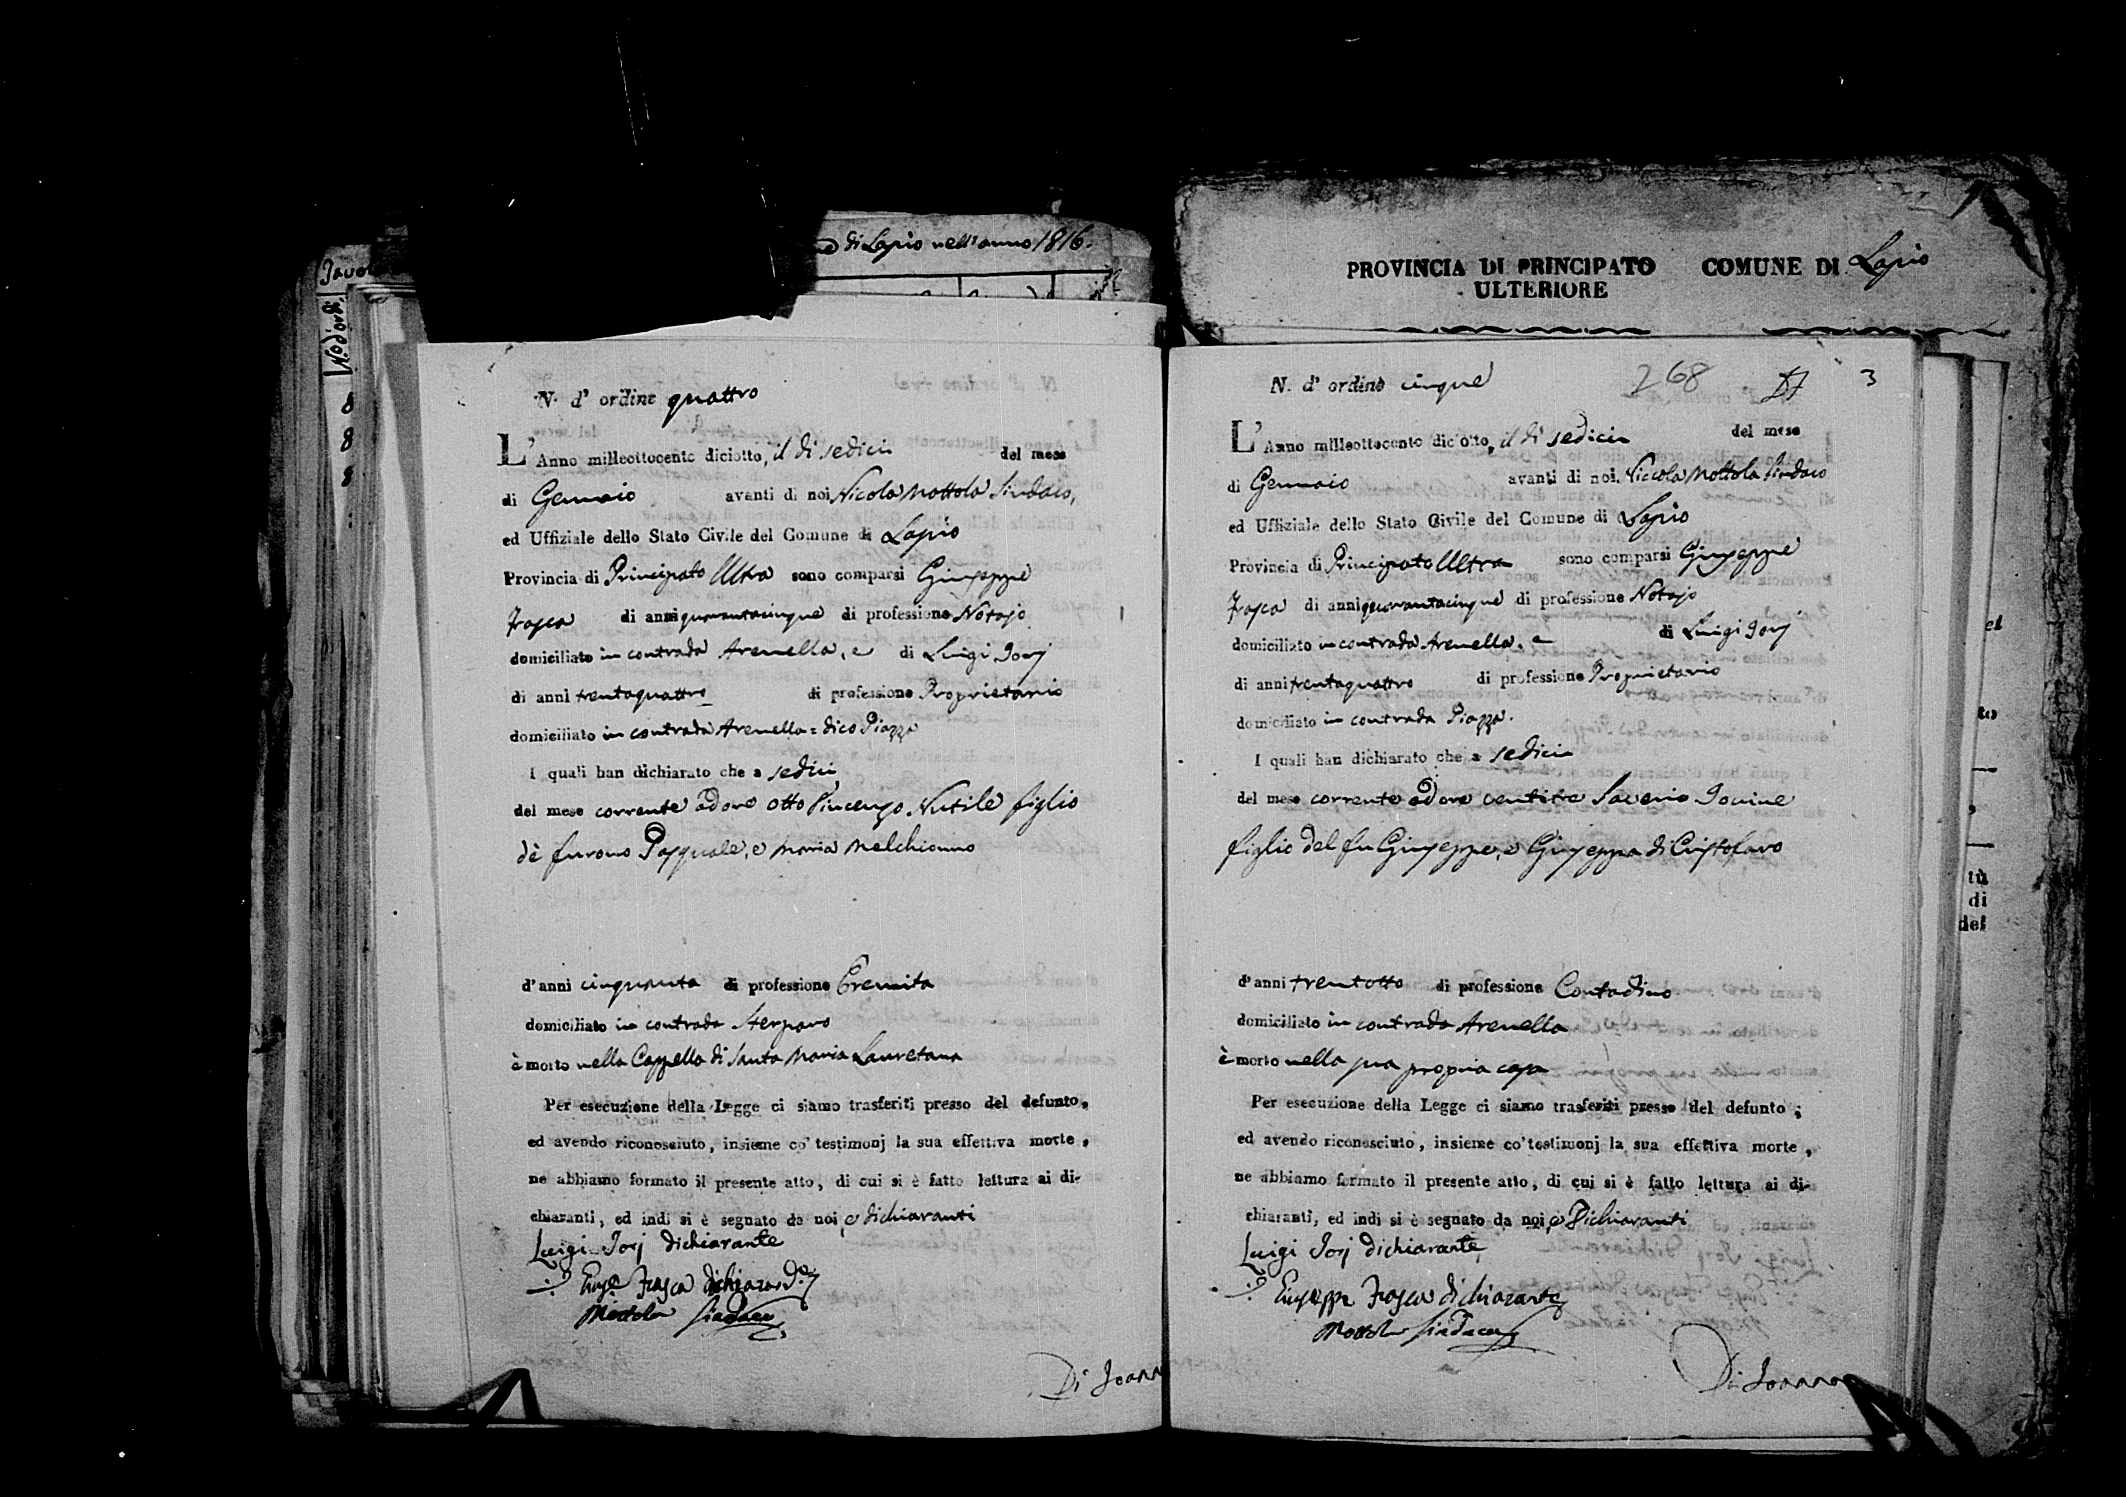 di Lapio nell'anno 1816.
N.o d'ord.
8
8
8
PROVINCIA DI PRINCIPATO COMUNE DI Lapio
ULTERIORE
N. d' ordine quattro
L'Anno milleottocento diciotto, il dì sedici del mese
di Gennaio avanti di noi Nicola Mottola Sindaco,
ed Uffiziale dello Stato Civile del Comune di Lapio
Provincia di Principato Ultra sono comparsi Giuseppe
Frasca di anni quarantacinque di professione Notajo
domiciliato in contrada Arenella, e di Luigi Jorj
di anni trentaquattro di professione Proprietario
domiciliato in contrada Arenella = dico Piazza
I quali han dichiarato che a sedici
del mese corrente ad ore otto Vincenzo Nutile figlio
dè furono Pasquale, e Maria Melchionno
d'anni cinquanta di professione Eremita
domiciliato in contrada Sterparo
è morto nella Cappella di Santa Maria Lauretana
Per esecuzione della Legge ci siamo trasferiti presso del defunto,
ed avendo riconosciuto, insieme co' testimonj la sua effettiva morte,
ne abbiamo formato il presente atto, di cui si è fatto lettura ai di-
chiaranti, ed indi si è segnato da noi, e dichiaranti
Luigi Jorj dichiarante
Frasca
Mottola Sindaco
Di Joann
N. d' ordine cinque 268 3
L'Anno milleottocento diciotto, il dì sedici del mese
di Gennaio avanti di noi, Niccola Mottola Sindaco
ed Uffiziale dello Stato Civile del Comune di Lapio
Provincia di Principato Ultra sono comparsi Giuseppe
Frasca di anni quarantacinque di professione Notajo
domiciliato in contrada Arenella, e di Luigi Jorj
di anni trentaquattro di professione Proprietario
domiciliato in contrada Piazza.
I quali han dichiarato che a sedici
del mese corrente ad ore ventitre Saverio Jovine
figlio del fu Giuseppe, e Giuseppa di Cristofaro
d'anni trentotto di professione Contadino
domiciliato in contrada Arenella
è morto nella sua propria casa
Per esecuzione della Legge ci siamo trasferiti presso del defunto,
ed avendo riconosciuto, insieme co' testimonj la sua effettiva morte,
ne abbiamo formato il presente atto, di cui si è fatto lettura ai di-
chiaranti, ed indi si è segnato da noi, e Dichiaranti
Luigi Jorj dichiarante
Giuseppe Frasca dichiarante
Mottola Sindaco
Di Joanno
to
tù
di
del